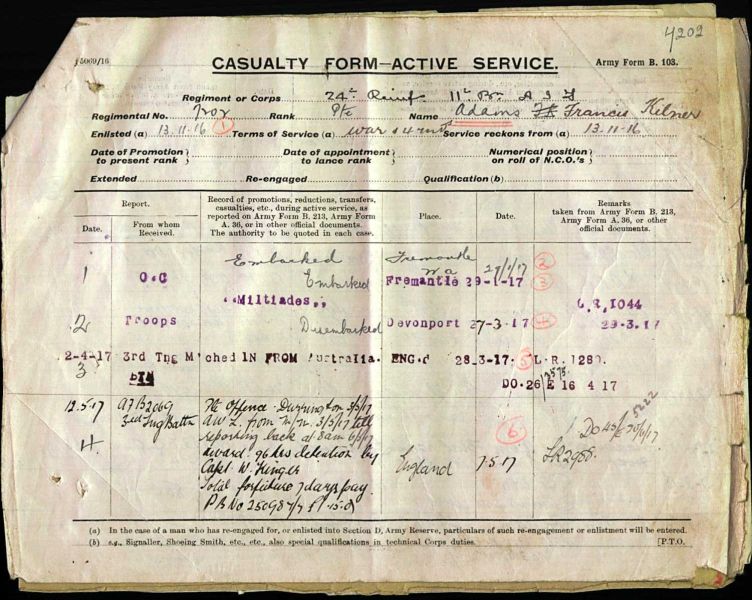 4202
15069/16
CASUALTY FORM—ACTIVE SERVICE.
Army Form B. 103.
Regiment or Corps 24th Reinf 11th Bn A I F
Regimental No. Rank Pte Name Adams Francis Kilner
Enlisted (a) 13.11.16 1 Terms of Service (a) war & 4 mths Service reckons from (a) 13.11.16
Date of Promotion to present rank Date of appointment to lance rank Numerical position on roll of N.C.O.'s
Extended Re-engaged Qualification (b)
Report. Record of promotions, reductions, transfers, casualties, etc., during active service, as reported on Army Form B. 213, Army Form A. 36, or in other official documents. The authority to be quoted in each case. Place. Date. Remarks taken from Army Form B. 213, Army Form A. 36, or other official documents.
Date. From whom Received.
Embarked Fremantle W A 2
1 O.C Embarked Fremantle 29-1-17 3
"Miltiades" L.R.1044
2 Troops Disembarked Devonport 27-3-17 4 29.3.17
2-4-17 3rd Tng M ched IN FROM Australia. ENG.d 28-3-17. 5 L.R.1280.
3 DO.26/ E 16 4 17
12.5.17 AFB2069 Offence Durrington 3/5/17
3rd Tng Battn AWL from m/n. 3/5/17 till
4. reporting back at 8am 6/5/17 6
award 96 hrs detention by England 7.5.17 LR2988.
Capt W. Kinger
Total forfeiture 7 days pay
(a) In the case of a man who has re-engaged for, or enlisted into Section D, Army Reserve, particulars of such re-engagement or enlistment will be entered.
(b) e.g., Signaller, Shoeing Smith, etc., etc., also special qualifications in technical Corps duties. [P.T.O.